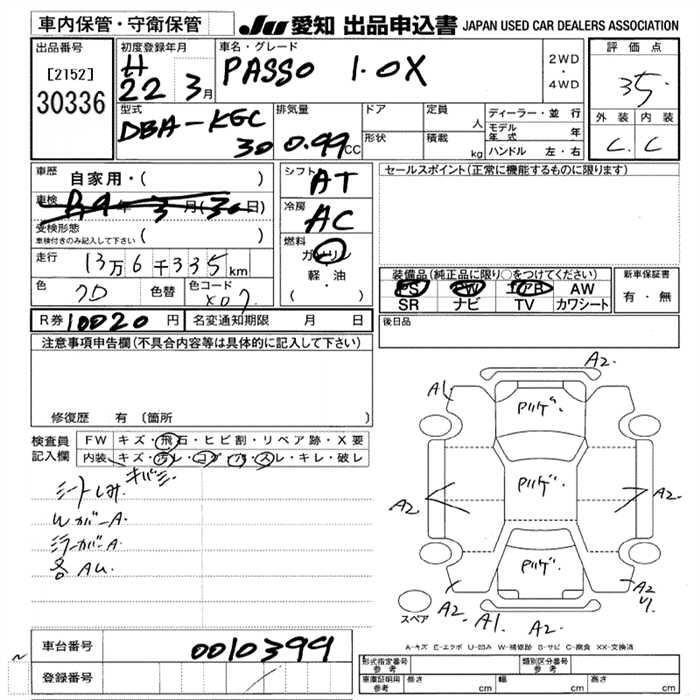 車内保管・守衛保管 JU 愛知 出品申込書 JAPAN USED CAR DEALERS ASSOCIATION
出品番号 初度登録年月 車名・グレード 評価点
[2152] H PASSO 1.0X 2WD・4WD 35.
30336 22 3月
型式 排気量 ドア 定員 人 ディーラー・並行 外装 内装
DBA-KGC モデル年式 年 C. C
30 0.99CC 形状 積載 kg ハンドル 左・右
車歴 自家用・( ) シフト AT セールスポイント(正常に機能するものに限ります)
車検 R4年 3月(30日) 冷房 AC
受検形態 ( )
車検付きのみ記入して下さい 燃料 ガソリン
走行 13万6千335km 軽・油
色 色替 色コード X07 (・) 装備品(純正品に限り○をつけてください) 新車保証書
PS PW エアB AW 有・無
SR ナビ TV カワシート
R券 10020円 名変通知期限 月 日 後日品
注意事項申告欄(不具合内容等は具体的に記入して下さい)
修復歴 有 (箇所
検査員 FW キズ・飛石・ヒビ割・リペア跡・X要
記入欄 内装 キズ・汚レ・コゲ・穴・スレ・キレ・破レ
シートしみ. キバミ
WガラーA.
ミラーガーA
各AU.
A2.
A1
Pハゲ.
A2 Pハゲ. A2.
Pハゲ.
A2. A2 U1
スペア A1. A2.
A-キズ E-エクボ U-凹み W-補修跡 S-サビ C-腐食 XX-交換済
車台番号 0010399
登録番号
形式指定番号 参考 類別区分番号 参考
車庫証明用 参考 長さ cm 幅 cm 高さ cm